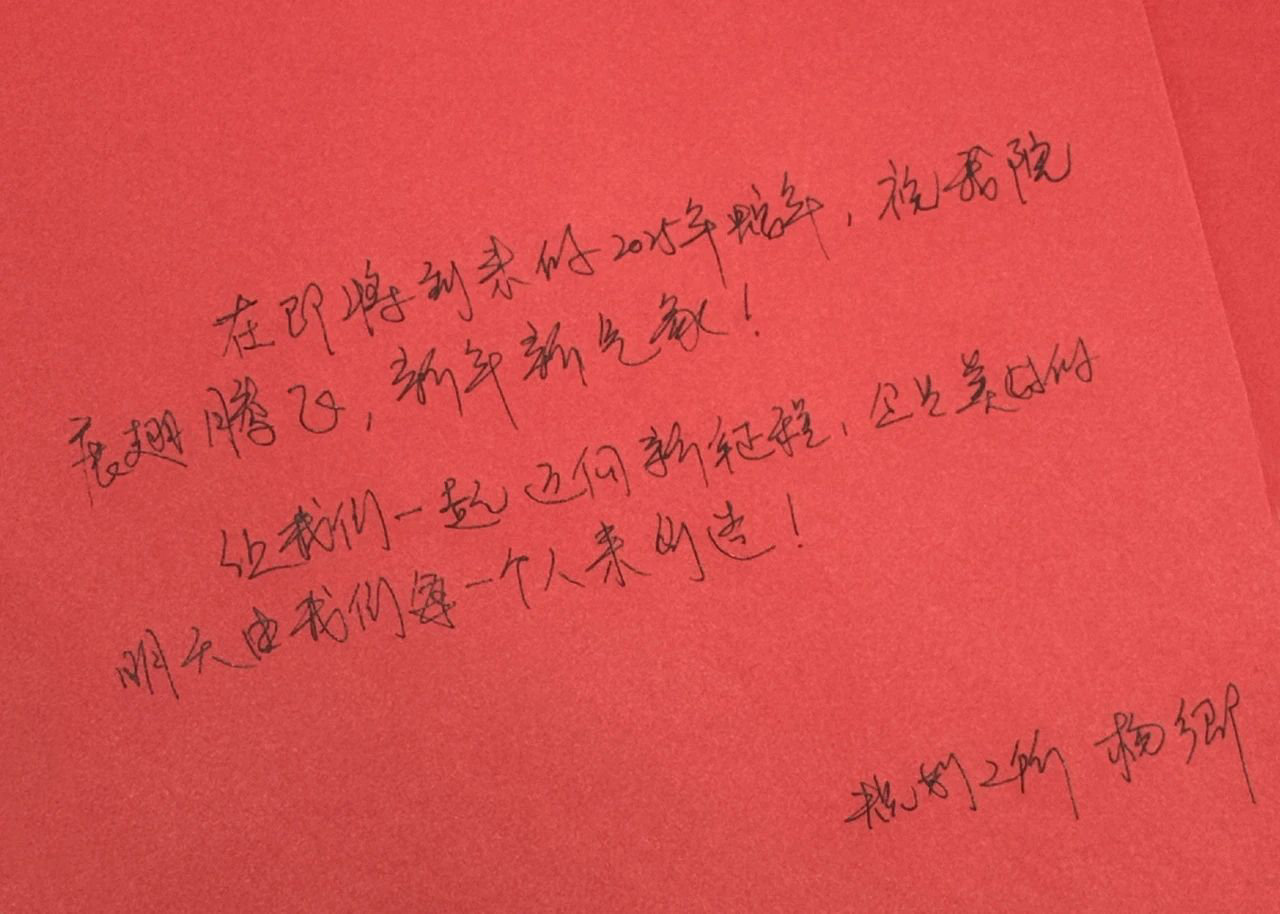 在即将到来的2025年蛇年，祝我院
展翅腾飞，新年新气象！
让我们一起迈向新征程，企业美好的
明天由我们每一个人来创造！
规划2所 杨卿